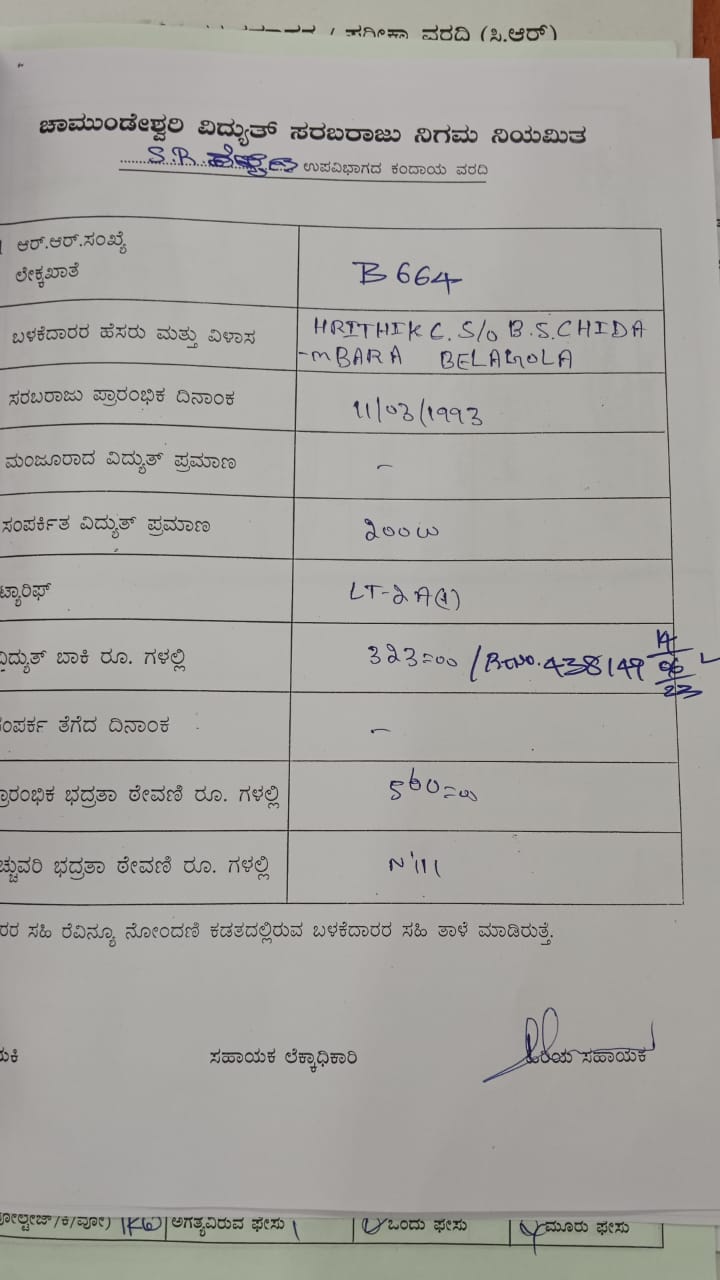 ವರದಿ (ಸಿ.ಆರ್)
ಚಾಮುಂಡೇಶ್ವರಿ ವಿದ್ಯುತ್ ಸರಬರಾಜು ನಿಗಮ ನಿಯಮಿತ
S.R. ಉಪವಿಭಾಗದ ಕಂದಾಯ ವರದಿ
ಆರ್.ಆರ್.ಸಂಖ್ಯೆ
ಲೇಕ್ಕಖಾತೆ
B 664
ಬಳಕೆದಾರರ ಹೆಸರು ಮತ್ತು ವಿಳಾಸ
HRITHIK C. S/o B.S.CHIDA
-mBARA BELAGOLA
ಸರಬರಾಜು ಪ್ರಾರಂಭಿಕ ದಿನಾಂಕ
11/03/1993
ಮಂಜೂರಾದ ವಿದ್ಯುತ್ ಪ್ರಮಾಣ
-
ಸಂಪರ್ಕಿತ ವಿದ್ಯುತ್ ಪ್ರಮಾಣ
200W
ಟ್ಯಾರಿಫ್
LT-2A(1)
ವಿದ್ಯುತ್ ಬಾಕಿ ರೂ. ಗಳಲ್ಲಿ
323=00 / R.No. 438149 14/06/23
ಸಂಪರ್ಕ ತೆಗೆದ ದಿನಾಂಕ
-
ಪ್ರಾರಂಭಿಕ ಭದ್ರತಾ ಠೇವಣಿ ರೂ. ಗಳಲ್ಲಿ
560=00
ಚ್ಚುವರಿ ಭದ್ರತಾ ಠೇವಣಿ ರೂ. ಗಳಲ್ಲಿ
N'ill
ರರ ಸಹಿ ರೆವಿನ್ಯೂ ನೋಂದಣಿ ಕಡತದಲ್ಲಿರುವ ಬಳಕೆದಾರರ ಸಹಿ ತಾಳೆ ಮಾಡಿರುತ್ತೆ.
ಸಹಾಯಕ ಲೆಕ್ಕಾಧಿಕಾರಿ
ಹಿರಿಯ ಸಹಾಯಕ
ಅಗತ್ಯವಿರುವ ಫೇಸು
ಒಂದು ಫೇಸು
ಮೂರು ಫೇಸು